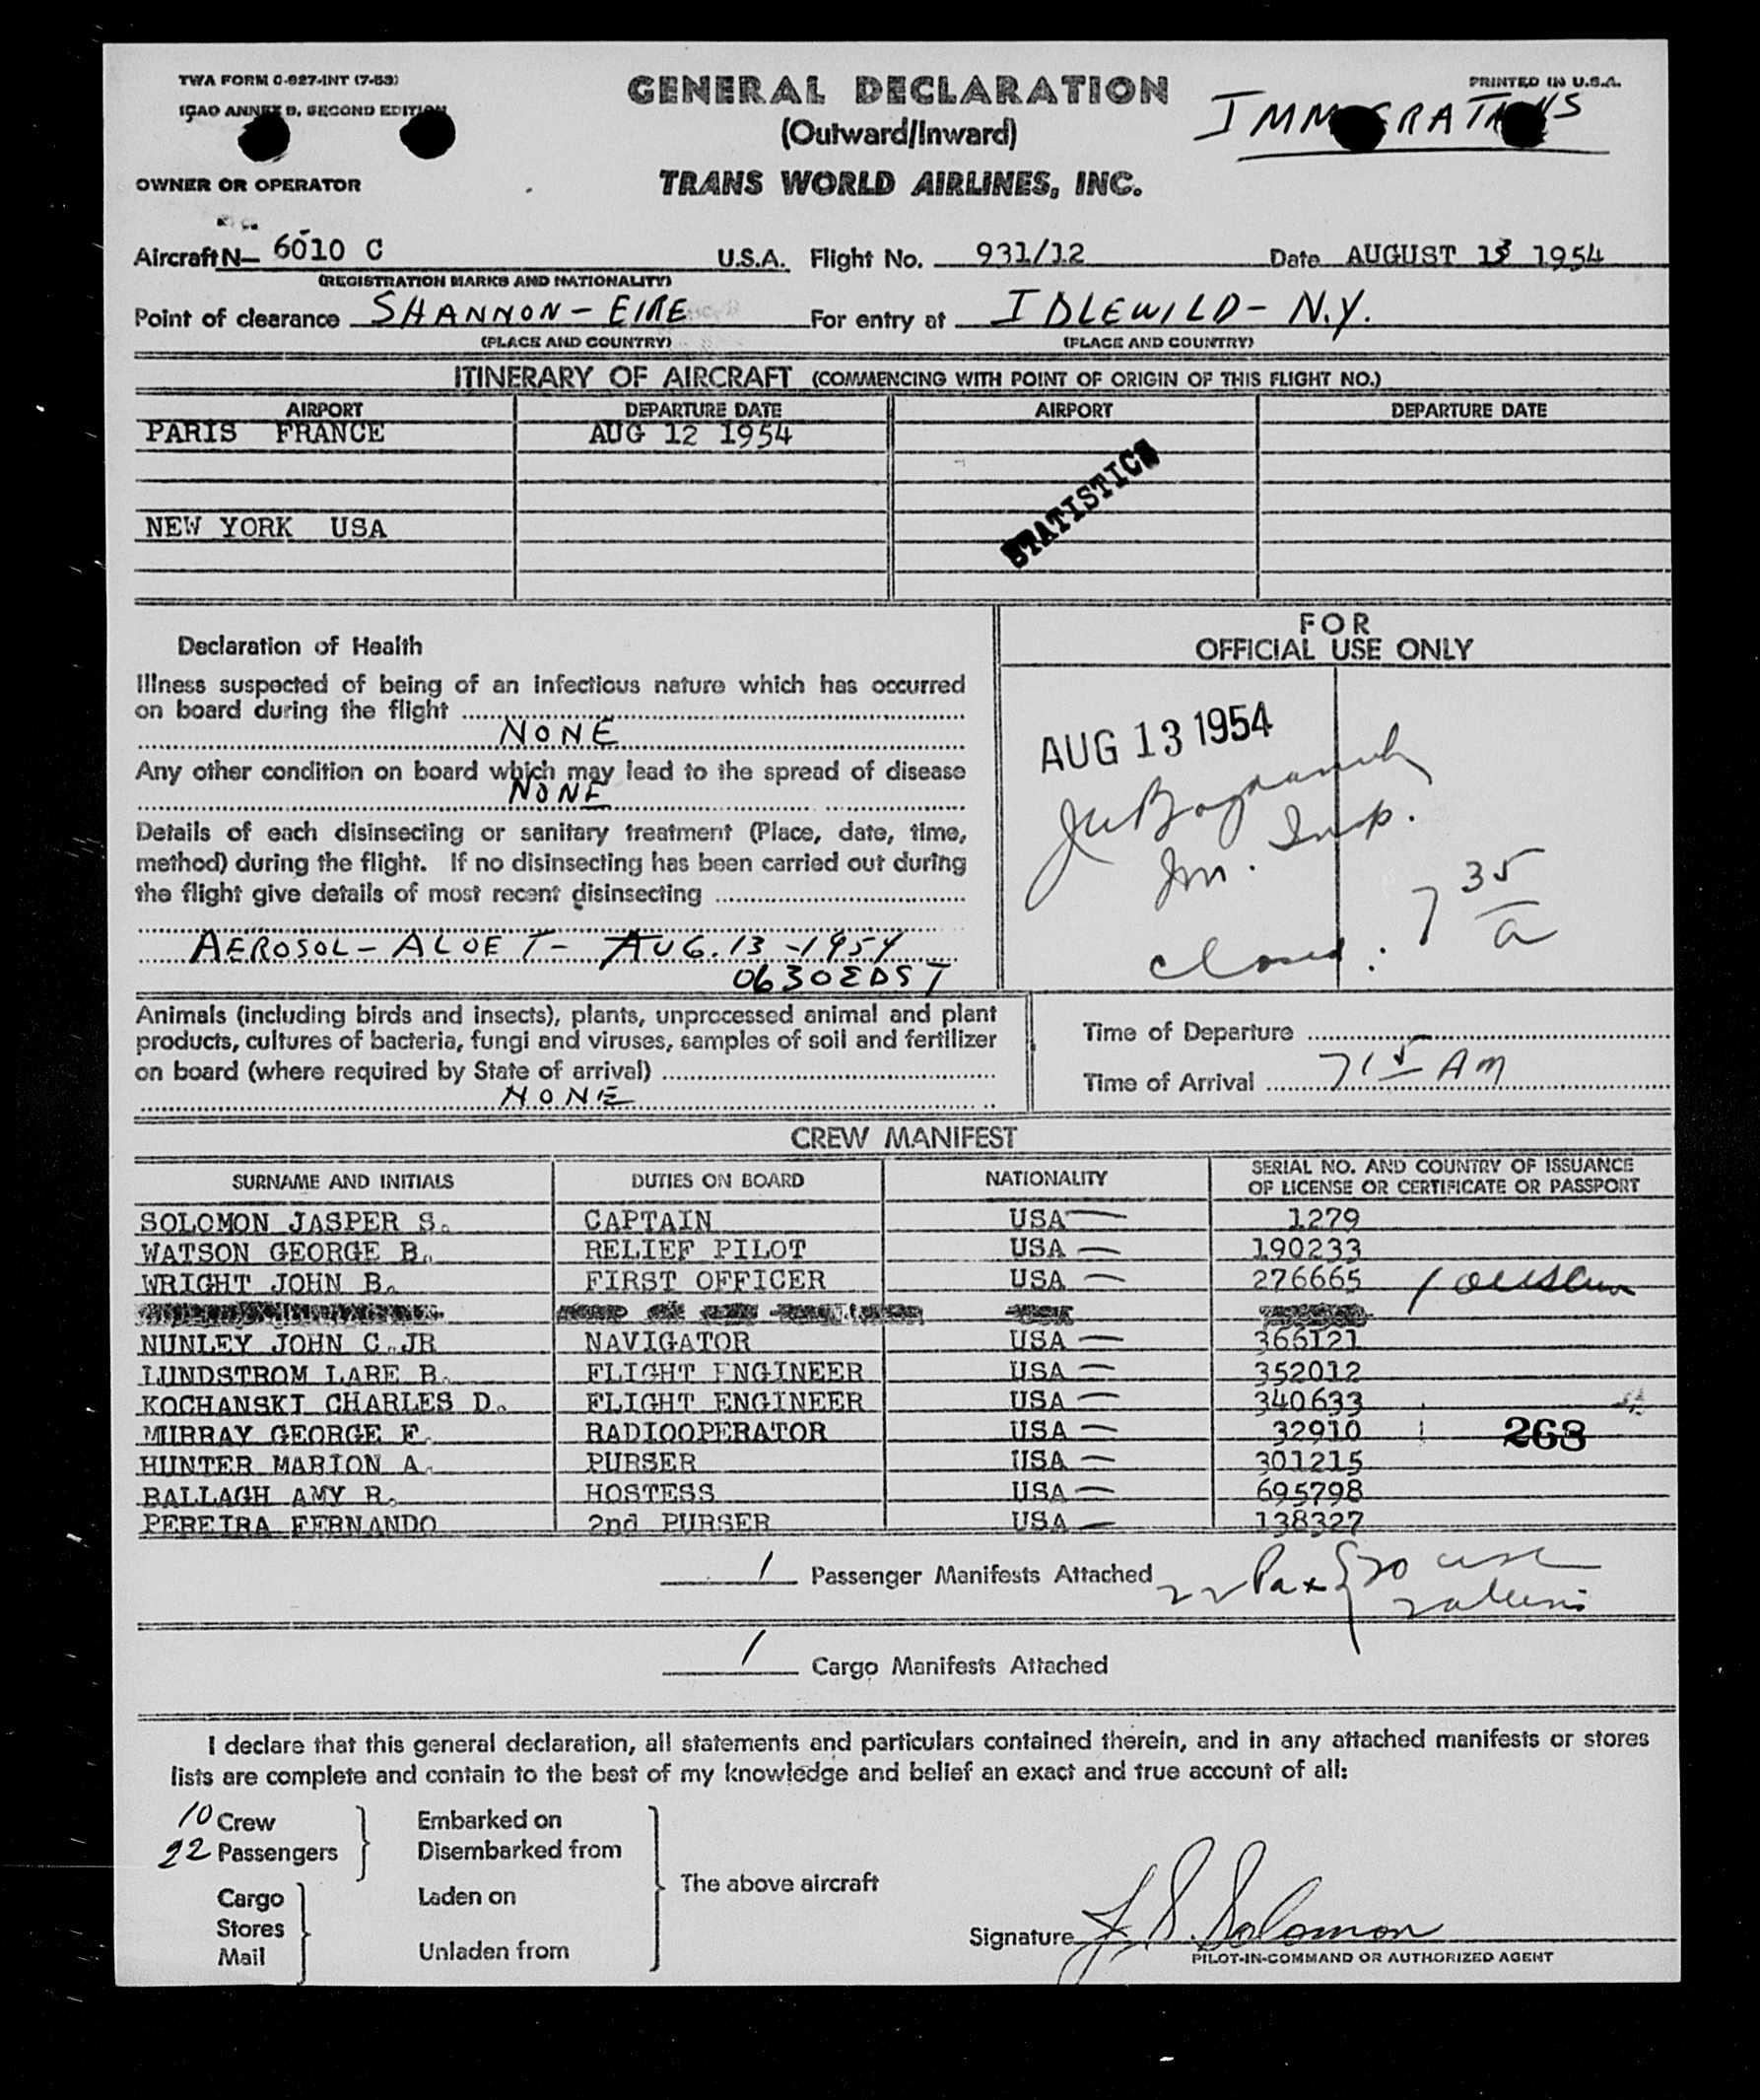 TWA FORM C-827-INT (7-53)
GENERAL DECLARATION
PRINTED IN U.S.A.
ICAO ANNEX 9, SECOND EDITION
(Outward/Inward)
IMMIGRATIONS
OWNER OR OPERATOR
TRANS WORLD AIRLINES, INC.
Aircraft N— 6010 C U.S.A. Flight No. 931/12 Date AUGUST 13 1954
(REGISTRATION MARKS AND NATIONALITY)
Point of clearance SHANNON - EIRE For entry at IDLEWILD - N.Y.
(PLACE AND COUNTRY) (PLACE AND COUNTRY)
ITINERARY OF AIRCRAFT (COMMENCING WITH POINT OF ORIGIN OF THIS FLIGHT NO.)
AIRPORT DEPARTURE DATE AIRPORT DEPARTURE DATE
PARIS FRANCE AUG 12 1954
STATISTICS
NEW YORK USA
Declaration of Health
Illness suspected of being of an infectious nature which has occurred
on board during the flight
NONE
Any other condition on board which may lead to the spread of disease
NONE
Details of each disinsecting or sanitary treatment (Place, date, time,
method) during the flight. If no disinsecting has been carried out during
the flight give details of most recent disinsecting
AEROSOL - ALOE T - AUG. 13 - 1954
0630 EDST
FOR
OFFICIAL USE ONLY
AUG 13 1954
Im. Insp.
closed: 7 35 a
Animals (including birds and insects), plants, unprocessed animal and plant
products, cultures of bacteria, fungi and viruses, samples of soil and fertilizer
on board (where required by State of arrival)
NONE
Time of Departure
Time of Arrival 715 AM
CREW MANIFEST
SURNAME AND INITIALS DUTIES ON BOARD NATIONALITY SERIAL NO. AND COUNTRY OF ISSUANCE
OF LICENSE OR CERTIFICATE OR PASSPORT
SOLOMON JASPER S. CAPTAIN USA 1279
WATSON GEORGE B. RELIEF PILOT USA 190233
WRIGHT JOHN B. FIRST OFFICER USA 276665
NUNLEY JOHN C. JR NAVIGATOR USA 366121
LUNDSTROM LARE B. FLIGHT ENGINEER USA 352012
KOCHANSKI CHARLES D. FLIGHT ENGINEER USA 340633
MURRAY GEORGE F. RADIOOPERATOR USA 32910 268
HUNTER MARION A. PURSER USA 301215
BALLAGH AMY R. HOSTESS USA 695798
PEREIRA FERNANDO 2nd PURSER USA 138327
1 Passenger Manifests Attached 22 Pax { 20 usc
2 aliens
1 Cargo Manifests Attached
I declare that this general declaration, all statements and particulars contained therein, and in any attached manifests or stores
lists are complete and contain to the best of my knowledge and belief an exact and true account of all:
10 Crew Embarked on
22 Passengers Disembarked from
The above aircraft
Cargo Laden on
Stores
Mail Unladen from
Signature J. S. Solomon
PILOT-IN-COMMAND OR AUTHORIZED AGENT